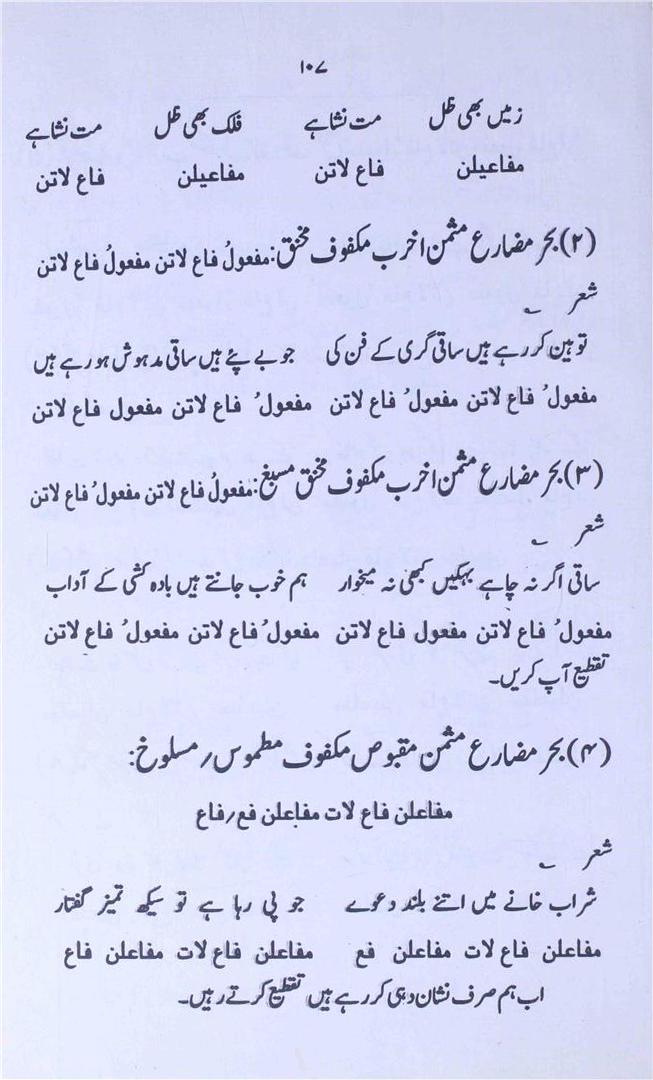 ۱۰۷
زمیں بھی ظل مت نشاہے فلک بھی ظل مت نشاہے
مفاعیلن فاع لاتن مفاعیلن فاع لاتن
(۲) بحر مضارع مثمن اخرب مکفوف مخنق: مفعولُ فاع لاتن مفعولُ فاع لاتن
شعر
توہین کر رہے ہیں ساقی گری کے فن کی جو بے پئے ہیں ساقی مدہوش ہو رہے ہیں
مفعولُ فاع لاتن مفعولُ فاع لاتن مفعولُ فاع لاتن مفعول فاع لاتن
(۳) بحر مضارع مثمن اخرب مکفوف مخنق مسبغ: مفعولُ فاع لاتن مفعولُ فاع لاتن
شعر
ساقی اگر نہ چاہے بہکیں کبھی نہ میخوار ہم خوب جانتے ہیں بادہ کشی کے آداب
مفعولُ فاع لاتن مفعول فاع لاتن مفعولُ فاع لاتن مفعولُ فاع لاتن
تقطیع آپ کریں۔
(۴) بحر مضارع مثمن مقبوص مکفوف مطموس / مسلوخ:
مفاعلن فاع لات مفاعلن فع / فاع
شعر
شراب خانے میں اتنے بلند دعوے جو پی رہا ہے تو سیکھ تمیز گفتار
مفاعلن فاع لات مفاعلن فع مفاعلن فاع لات مفاعلن فاع
اب ہم صرف نشان دہی کر رہے ہیں تقطیع کرتے رہیں۔